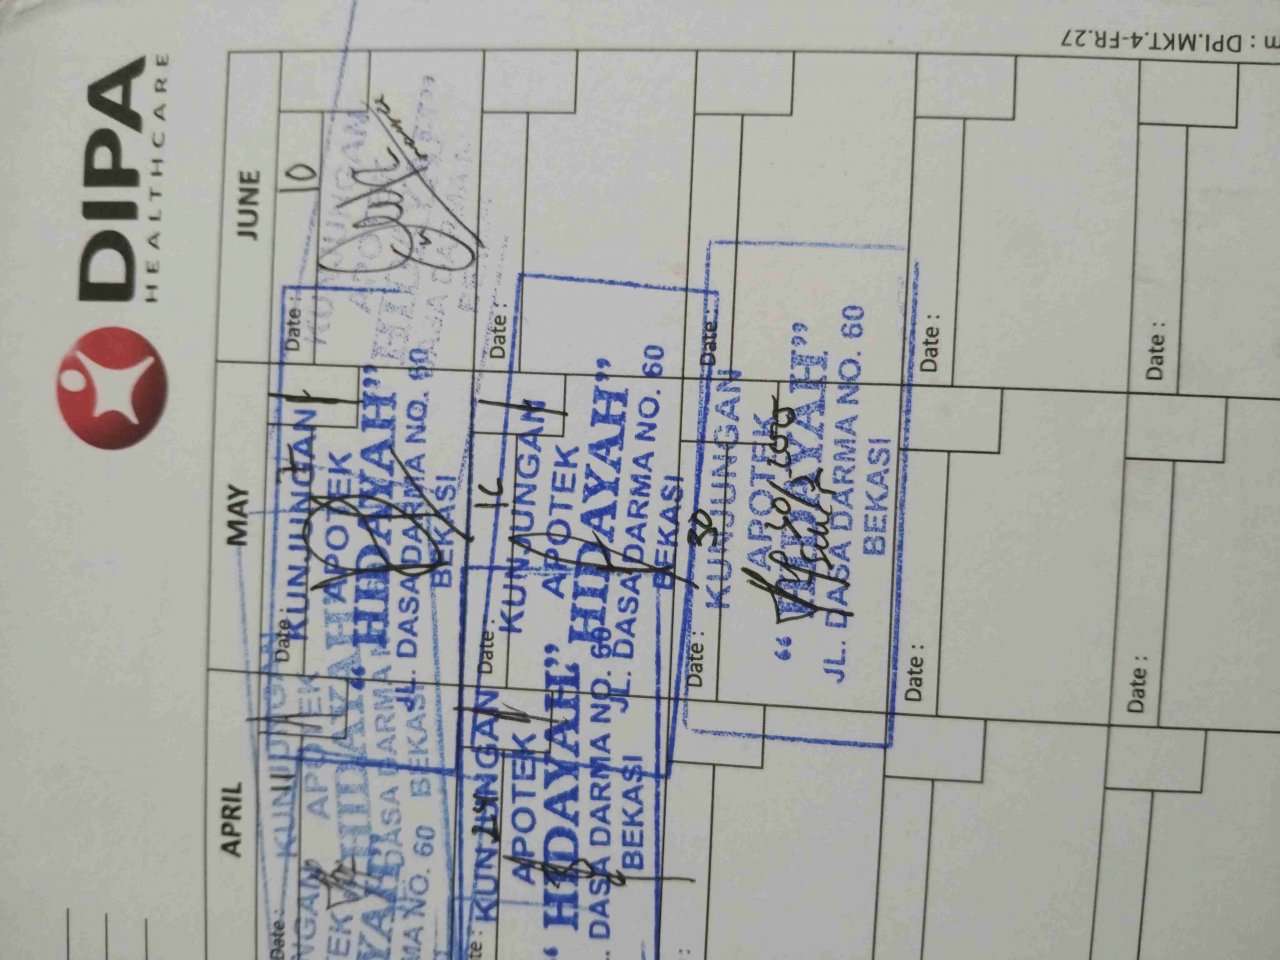 m : DPI.MKT.4-FR.27
DIPA
HEALTHCARE
APRIL
MAY
JUNE
Date :
Date :
Date : 10
KUNJUNGAN
APOTEK
HIDAYAH
DASA DARMA
NO. 60 BEKASI
NGAN
TEK
YAH”
MA NO. 60
KUNJUNGAN
APOTEK
“HIDAYAH”
JL. DASA DARMA NO. 60
BEKASI
KUNJUNGAN
APOTEK
HIDAYAH”
DASA DARMA NO.
BEKASI
te :
Date :
Date :
24
KUNJUNGAN
APOTEK
“HIDAYAH”
DASA DARMA NO. 60
BEKASI
KUNJUNGAN
APOTEK
HIDAYAH”
JL. DASA DARMA NO. 60
BEKASI
:
Date : 30
Date :
KUNJUNGAN
APOTEK
“HIDAYAH”
JL. DASA DARMA NO. 60
BEKASI
Date :
Date :
Date :
Date :